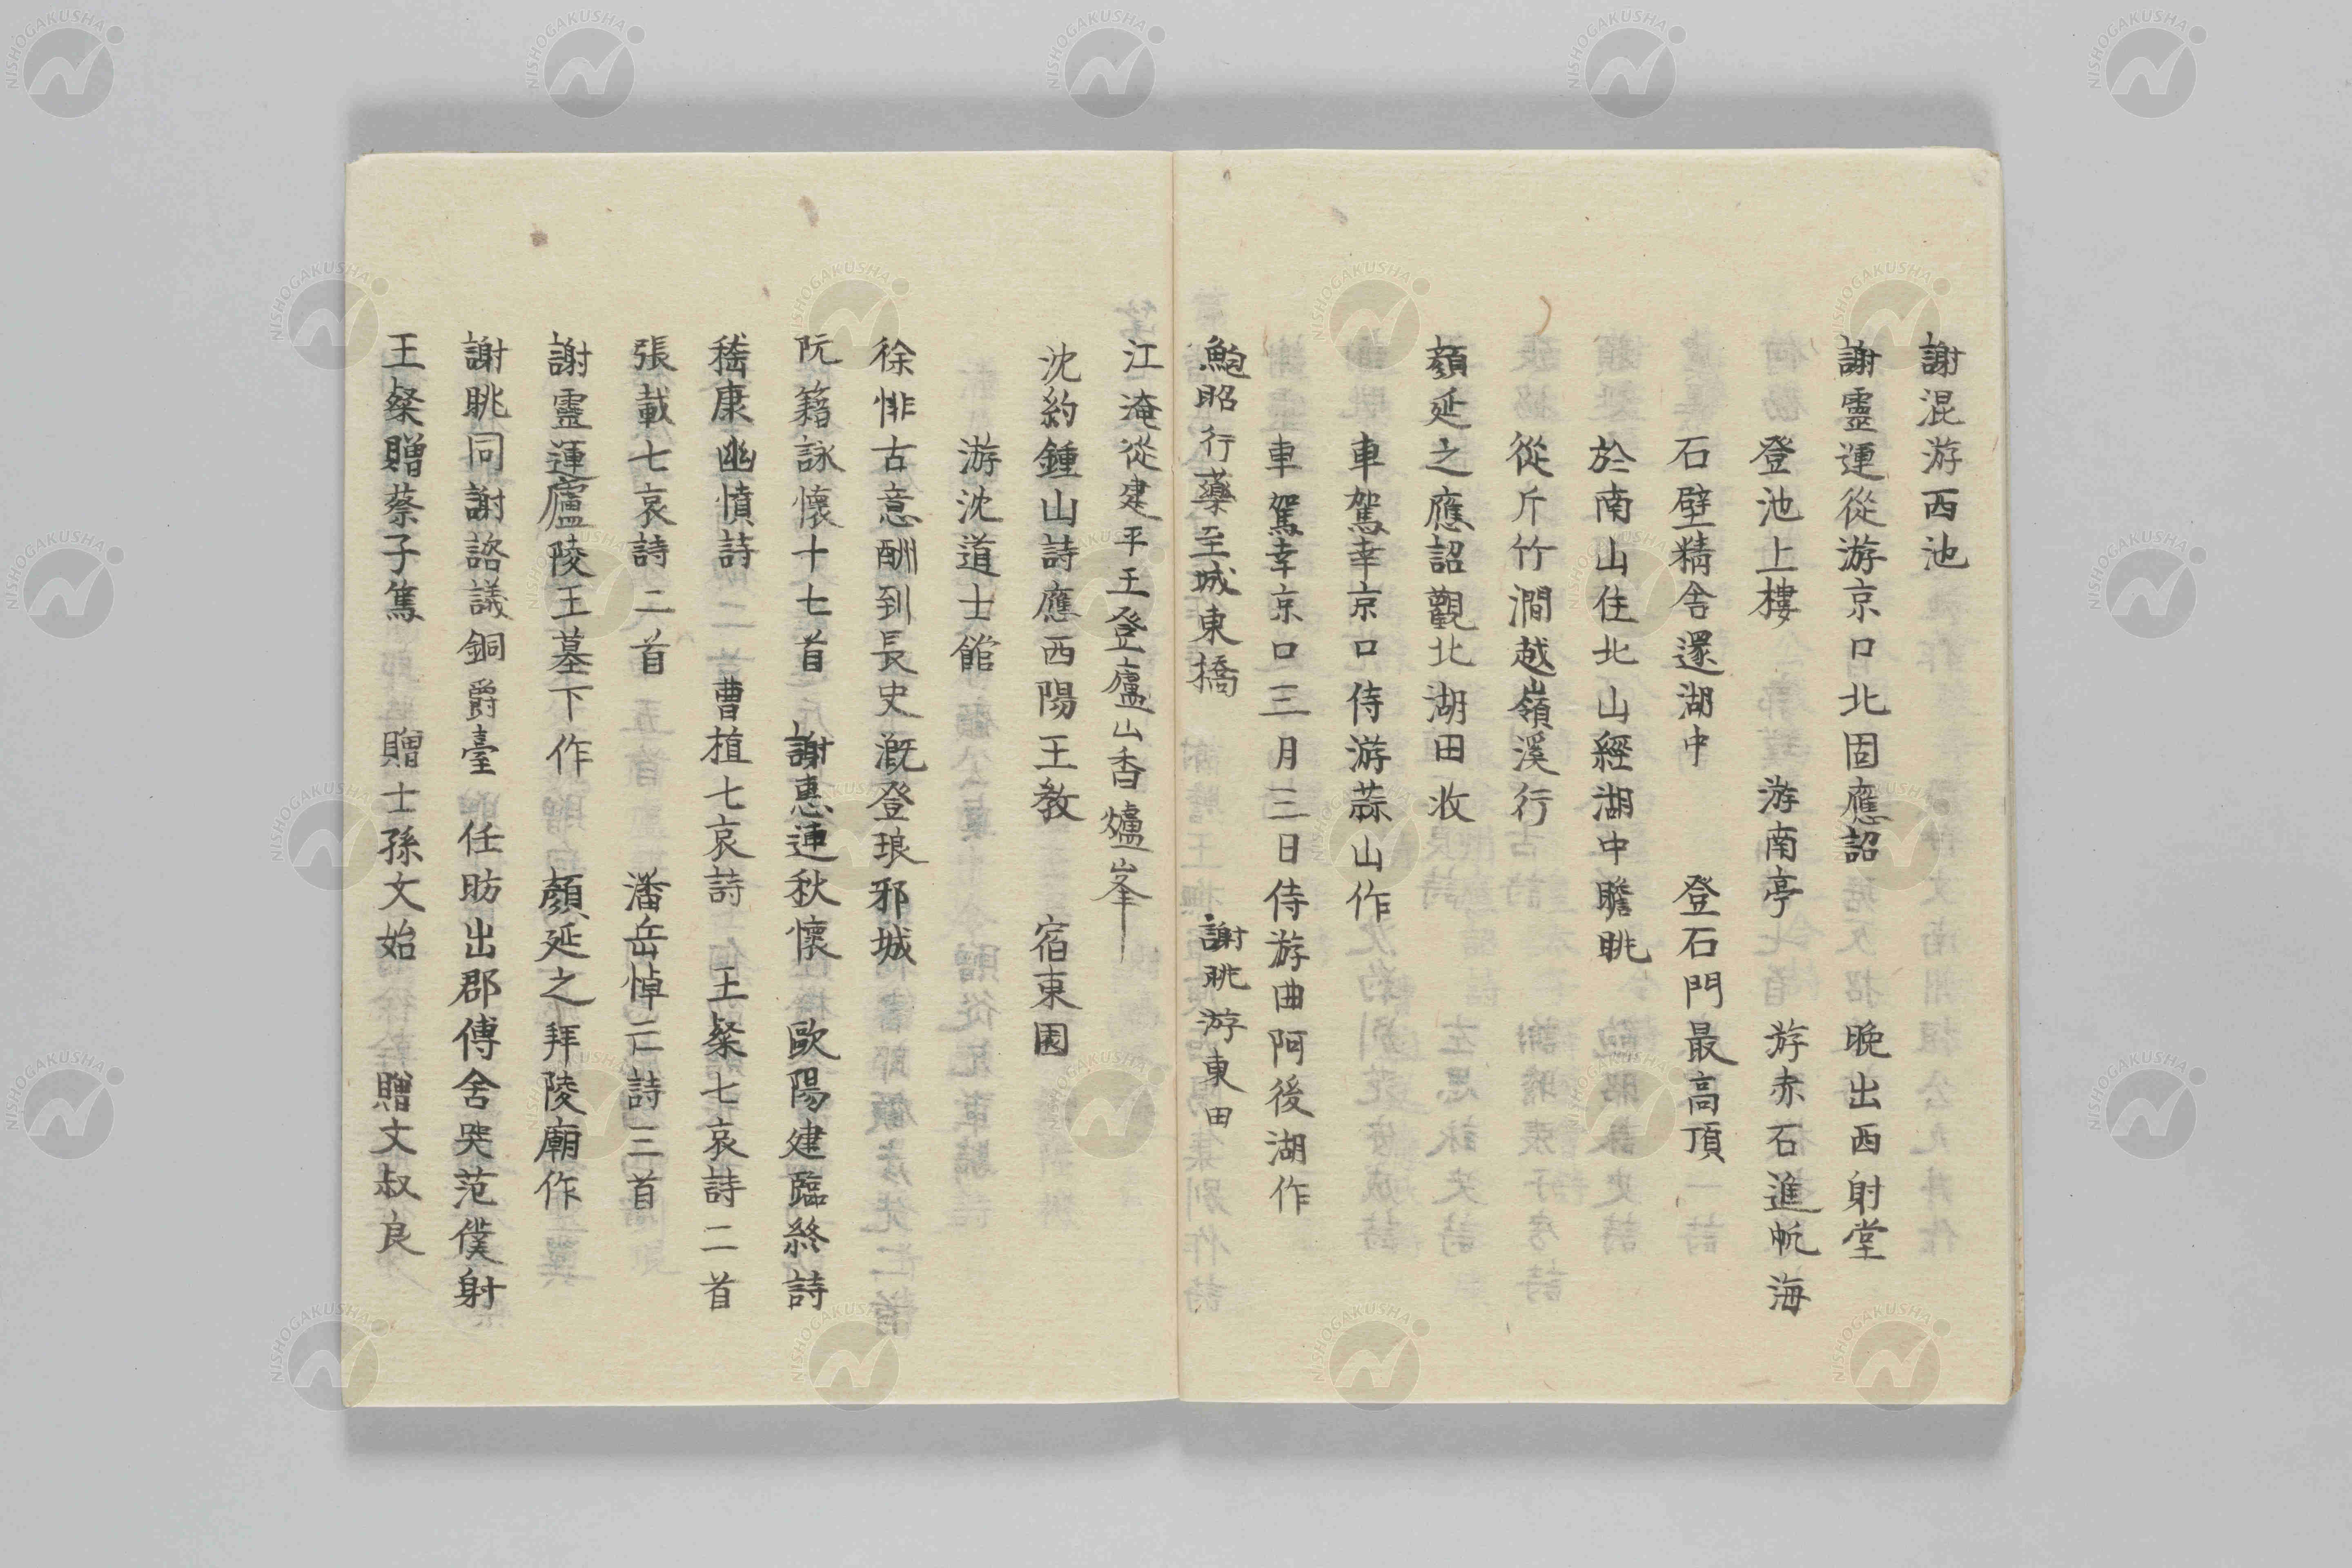 謝混游西池
謝靈運從游京口北固應詔　晚出西射堂
登池上樓　游南亭　游赤石進帆海
石壁精舍還湖中　登石門最高頂
於南山住北山經湖中瞻眺
從斤竹澗越嶺溪行
顏延之應詔觀北湖田收
車駕幸京口侍游蒜山作
車駕幸京口三月三日侍游曲阿後湖作
鮑昭行藥至城東橋　謝眺游東田
江淹從建平王登廬山香爐峯
沈約鍾山詩應西陽王教　宿東園
游沈道士館
徐悱古意酬到長史溉登琅邪城
阮籍詠懷十七首　謝惠連秋懷　歐陽建臨終詩
嵇康幽憤詩　曹植七哀詩　王粲七哀詩二首
張載七哀詩二首　潘岳悼亡詩三首
謝靈運廬陵王墓下作　顏延之拜陵廟作
謝眺同謝諮議銅爵臺　任昉出郡傳舍哭范僕射
王粲贈蔡子篤　贈士孫文始　贈文叔良
NISHOGAKUSHA